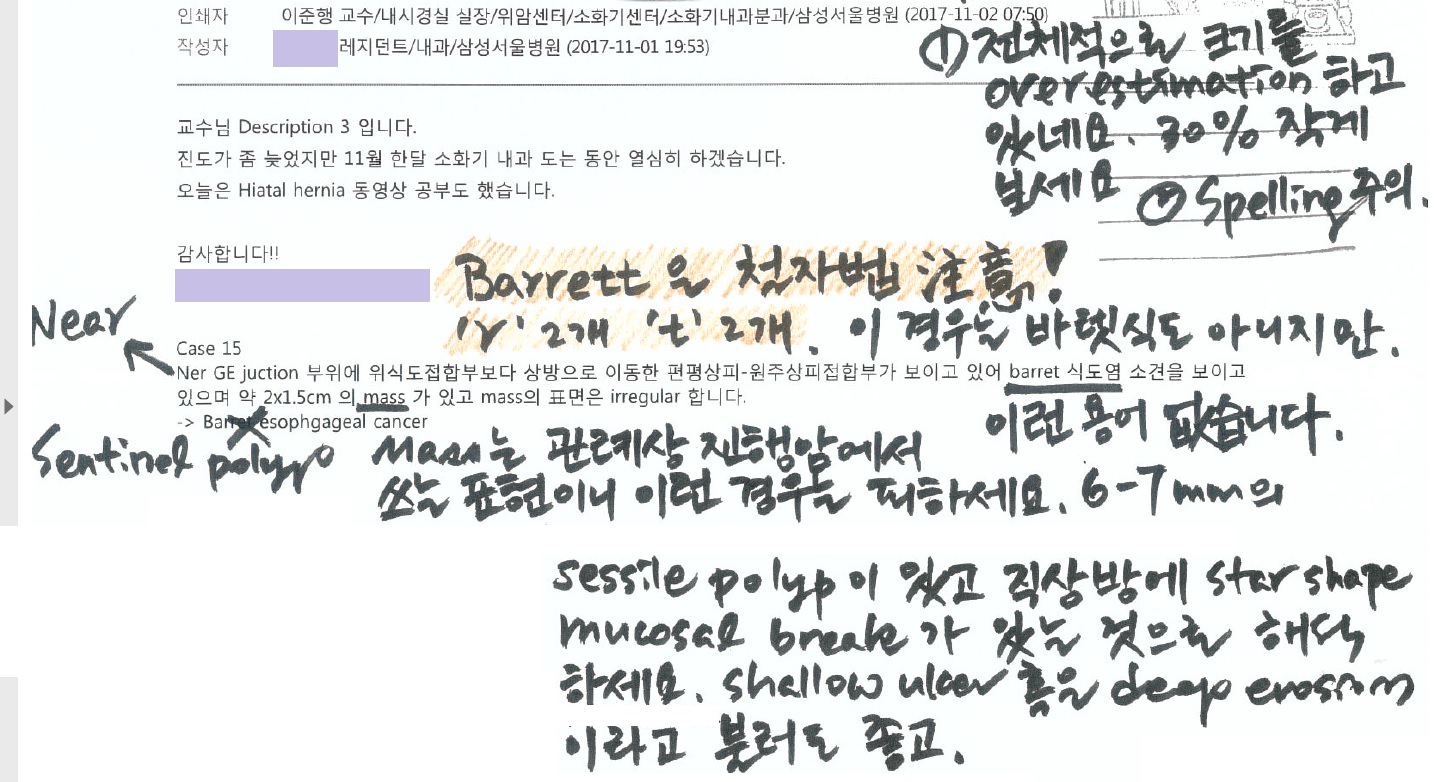 인쇄자 이준행 교수/내시경실 실장/위암센터/소화기센터/소화기내과분과/삼성서울병원 (2017-11-02 07:50)
작성자 레지던트/내과/삼성서울병원 (2017-11-01 19:53)
① 전체적으로 크기를
overestimation 하고
있네요. 30% 작게
보세요 ② Spelling 주의.
교수님 Description 3 입니다.
진도가 좀 늦었지만 11월 한달 소화기 내과 도는 동안 열심히 하겠습니다.
오늘은 Hiatal hernia 동영상 공부도 했습니다.
감사합니다!!
Barrett 은 철자법 注意!
'r' 2개 't' 2개. 이 경우는 바렛식도 아니지만.
Near
Case 15
Ner GE juction 부위에 위식도접합부보다 상방으로 이동한 편평상피-원주상피접합부가 보이고 있어 barret 식도염 소견을 보이고
있으며 약 2x1.5cm 의 mass 가 있고 mass의 표면은 irregular 합니다.
-> Barret esophgageal cancer
이런 용어 없습니다.
Sentinel polyp
Mass는 관례상 진행암에서
쓰는 표현이니 이런 경우는 피하세요. 6-7mm의
sessile polyp이 있고 직상방에 star shape
mucosal break가 있는 것으로 해석
하세요. shallow ulcer 혹은 deep erosion
이라고 불러도 좋고.